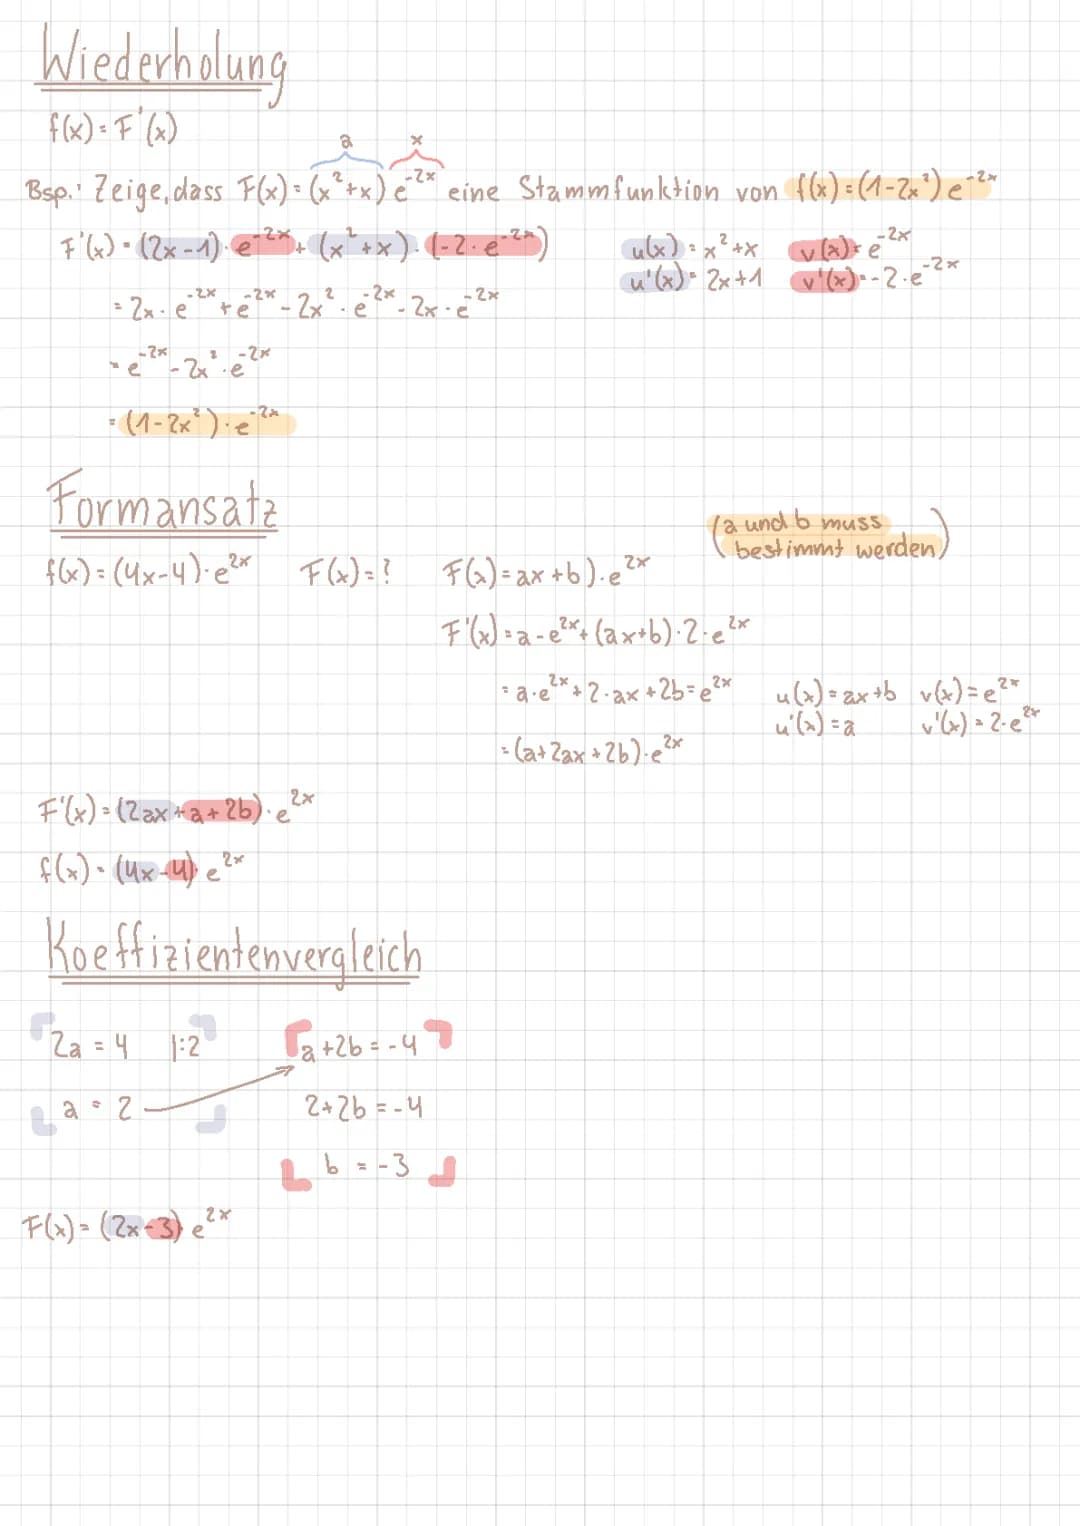 Wiederholung
f(x) = F'(x)
a x
Bsp.: Zeige, dass F(x) = (x²+x) e^-2x eine Stammfunktion von f(x) = (1-2x²) e^-2x
F'(x) = (2x-1) · e^-2x + (x²+x) · (-2 · e^-2x)
u(x) = x²+x v(x) = e^-2x
u'(x) = 2x+1 v'(x) = -2 · e^-2x
= 2x · e^-2x + e^-2x - 2x² · e^-2x - 2x · e^-2x
= e^-2x - 2x² · e^-2x
= (1-2x²) · e^-2x
Formansatz
(a und b muss
bestimmt werden)
f(x) = (4x-4) · e^2x F(x) = ? F(x) = ax+b) · e^2x
F'(x) = a - e^2x + (ax+b) · 2 · e^2x
= a · e^2x + 2 · ax + 2b = e^2x
u(x) = ax+b v(x) = e^2x
u'(x) = a v'(x) = 2 · e^2x
= (a+2ax+2b) · e^2x
F'(x) = (2ax+a+2b) · e^2x
f(x) = (4x-4) e^2x
Koeffizientenvergleich
2a = 4 |:2 a+2b = -4
a = 2 2+2b = -4
b = -3
F(x) = (2x-3) e^2x